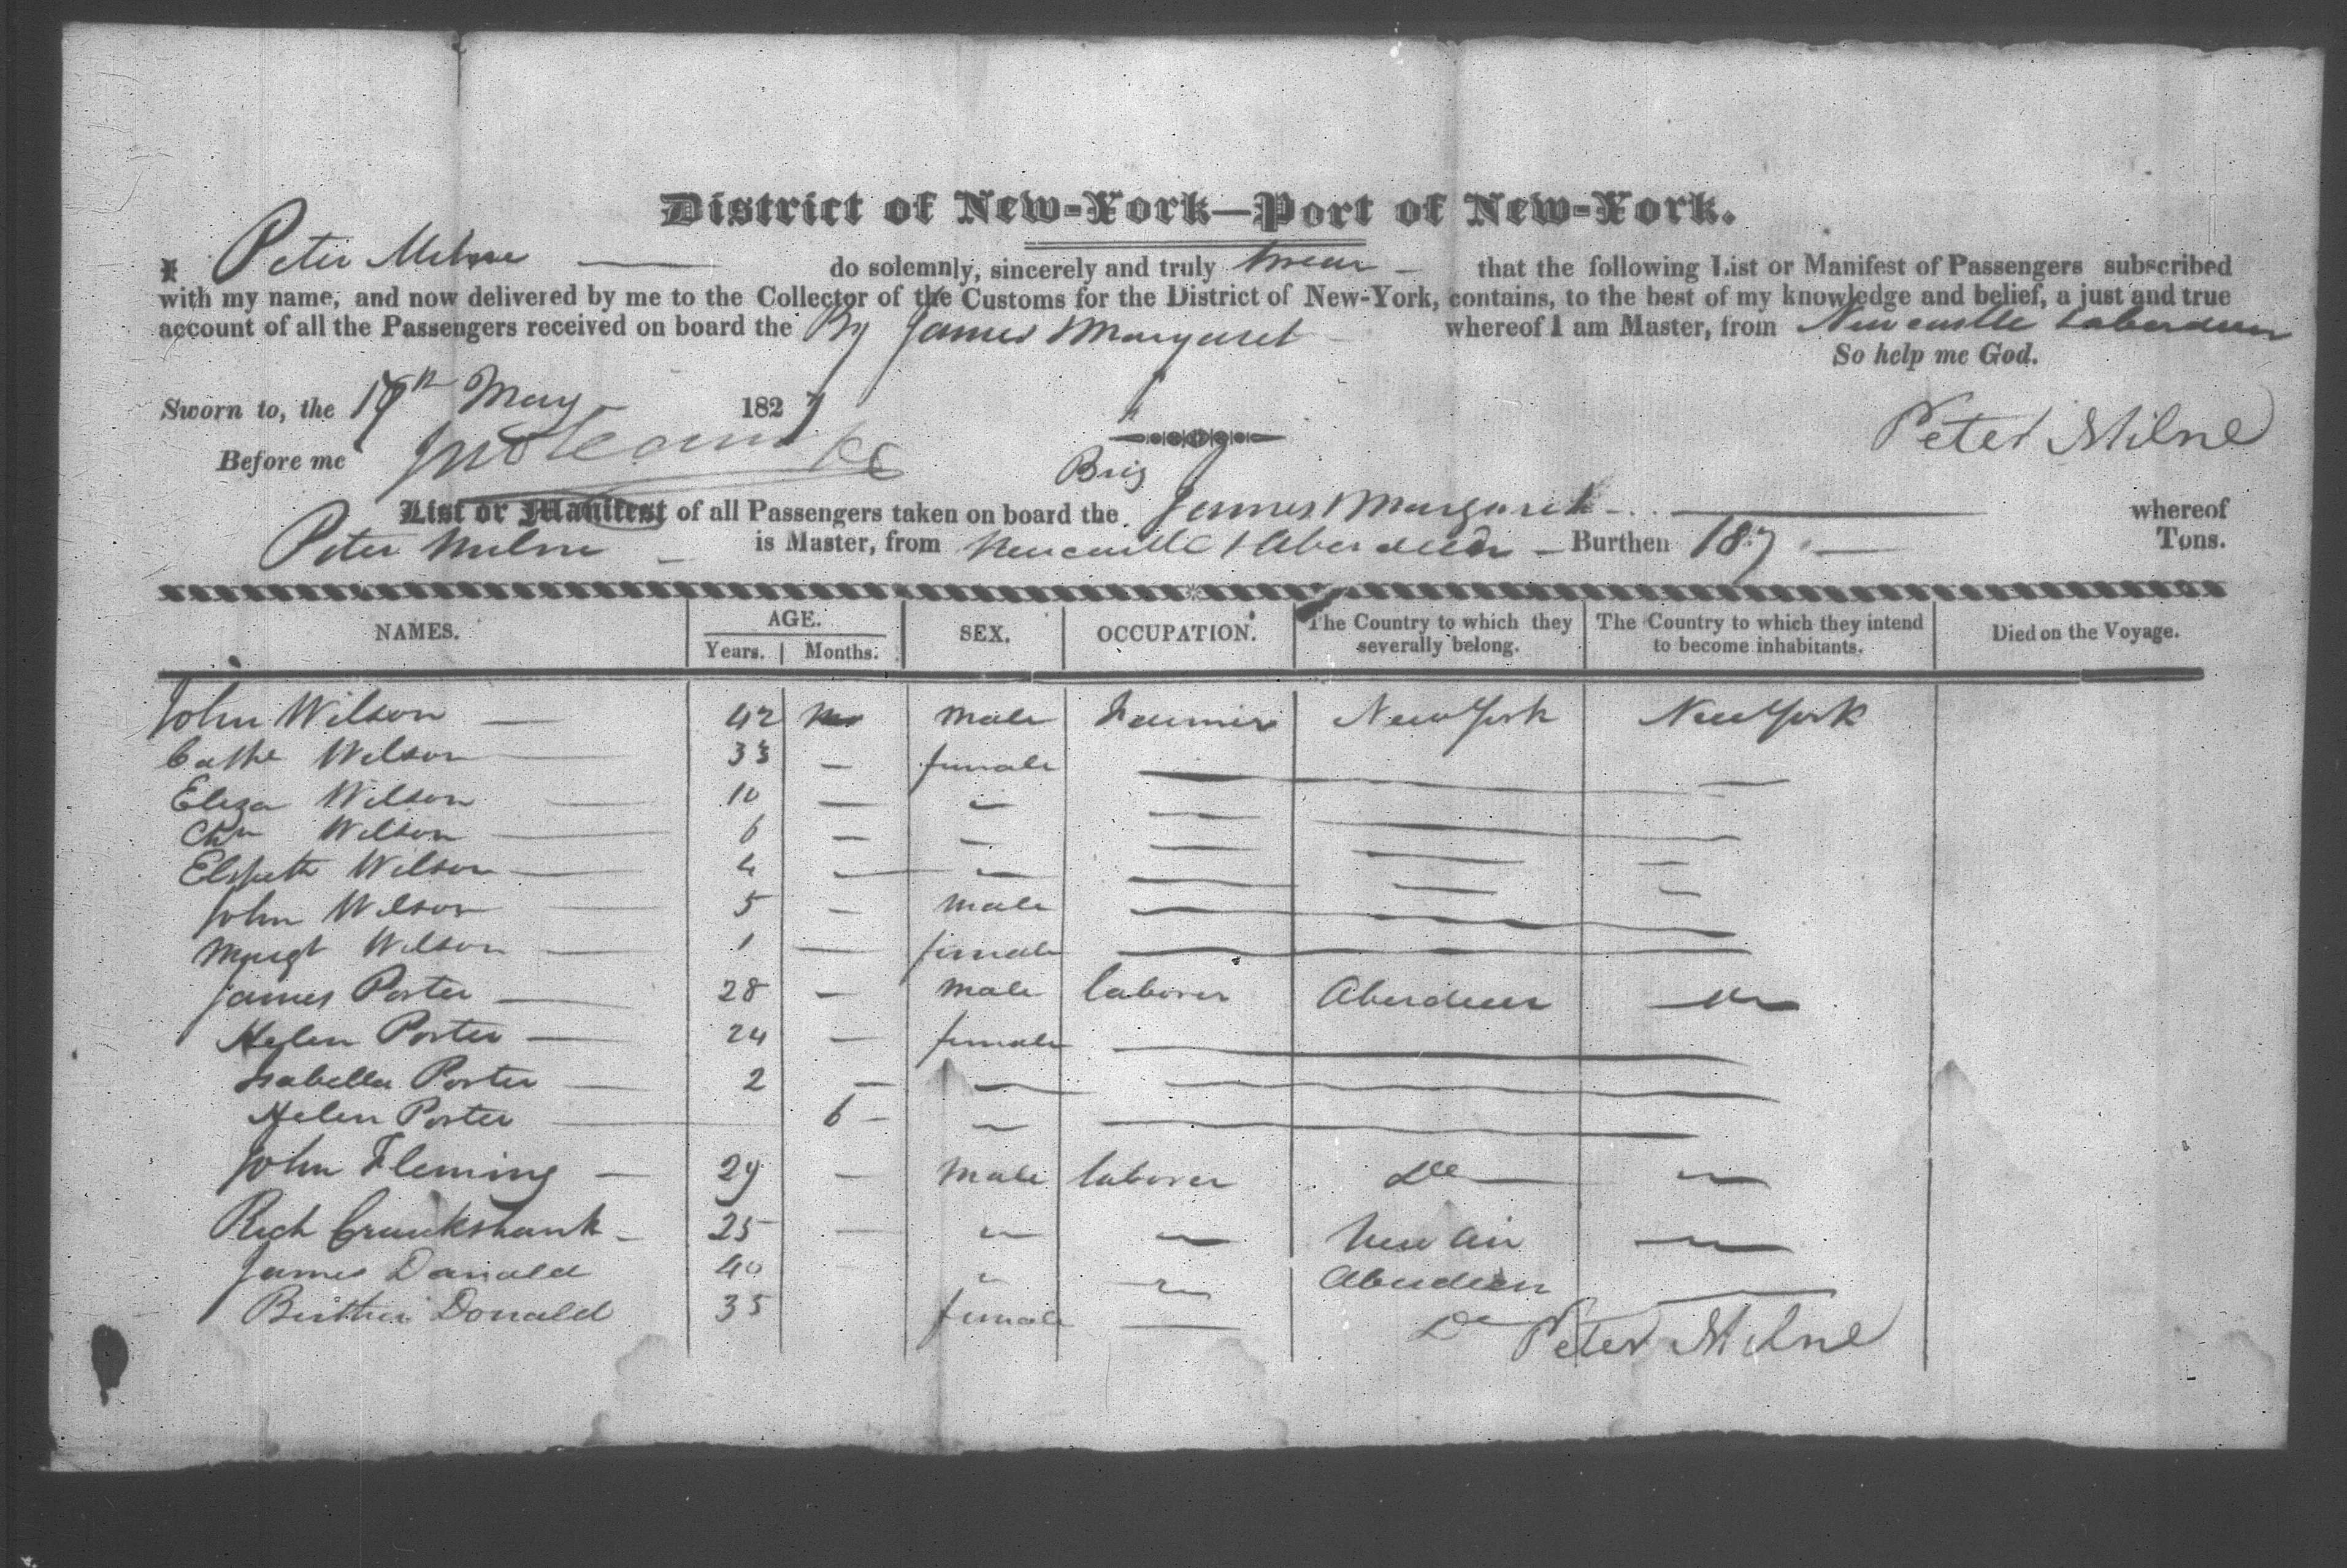 District of New-York—Port of New-York.
I Peter Milne do solemnly, sincerely and truly swear that the following List or Manifest of Passengers subscribed
with my name, and now delivered by me to the Collector of the Customs for the District of New-York, contains, to the best of my knowledge and belief, a just and true
account of all the Passengers received on board the James & Margaret whereof I am Master, from Newcastle & aberdeen
So help me God.
Sworn to, the 19th May 1827
Peter Milne
Before me
Brig
List or Manifest of all Passengers taken on board the James & Margaret whereof
Peter Milne is Master, from Newcastle & Aberdeen Burthen 187 Tons.
NAMES. AGE. Years. Months. SEX. OCCUPATION. The Country to which they severally belong. The Country to which they intend to become inhabitants. Died on the Voyage.
John Wilson 42 male Farmer New York New York
Cathe Wilson 33 — female
Eliza Wilson 10 — "
Wilson 6 — "
Elspeth Wilson 4 — "
John Wilson 5 — male
Margt Wilson 1 — female
James Porter 28 — male laborer Aberdeen "
Helen Porter 24 — female
Isabella Porter 2 — "
Helen Porter 6 — "
John Fleming 29 — male laborer Do "
Rich Cruickshank 25 — " " "
James Donald 40 " " Aberdeen
Donald 35 female — Do
Peter Milne